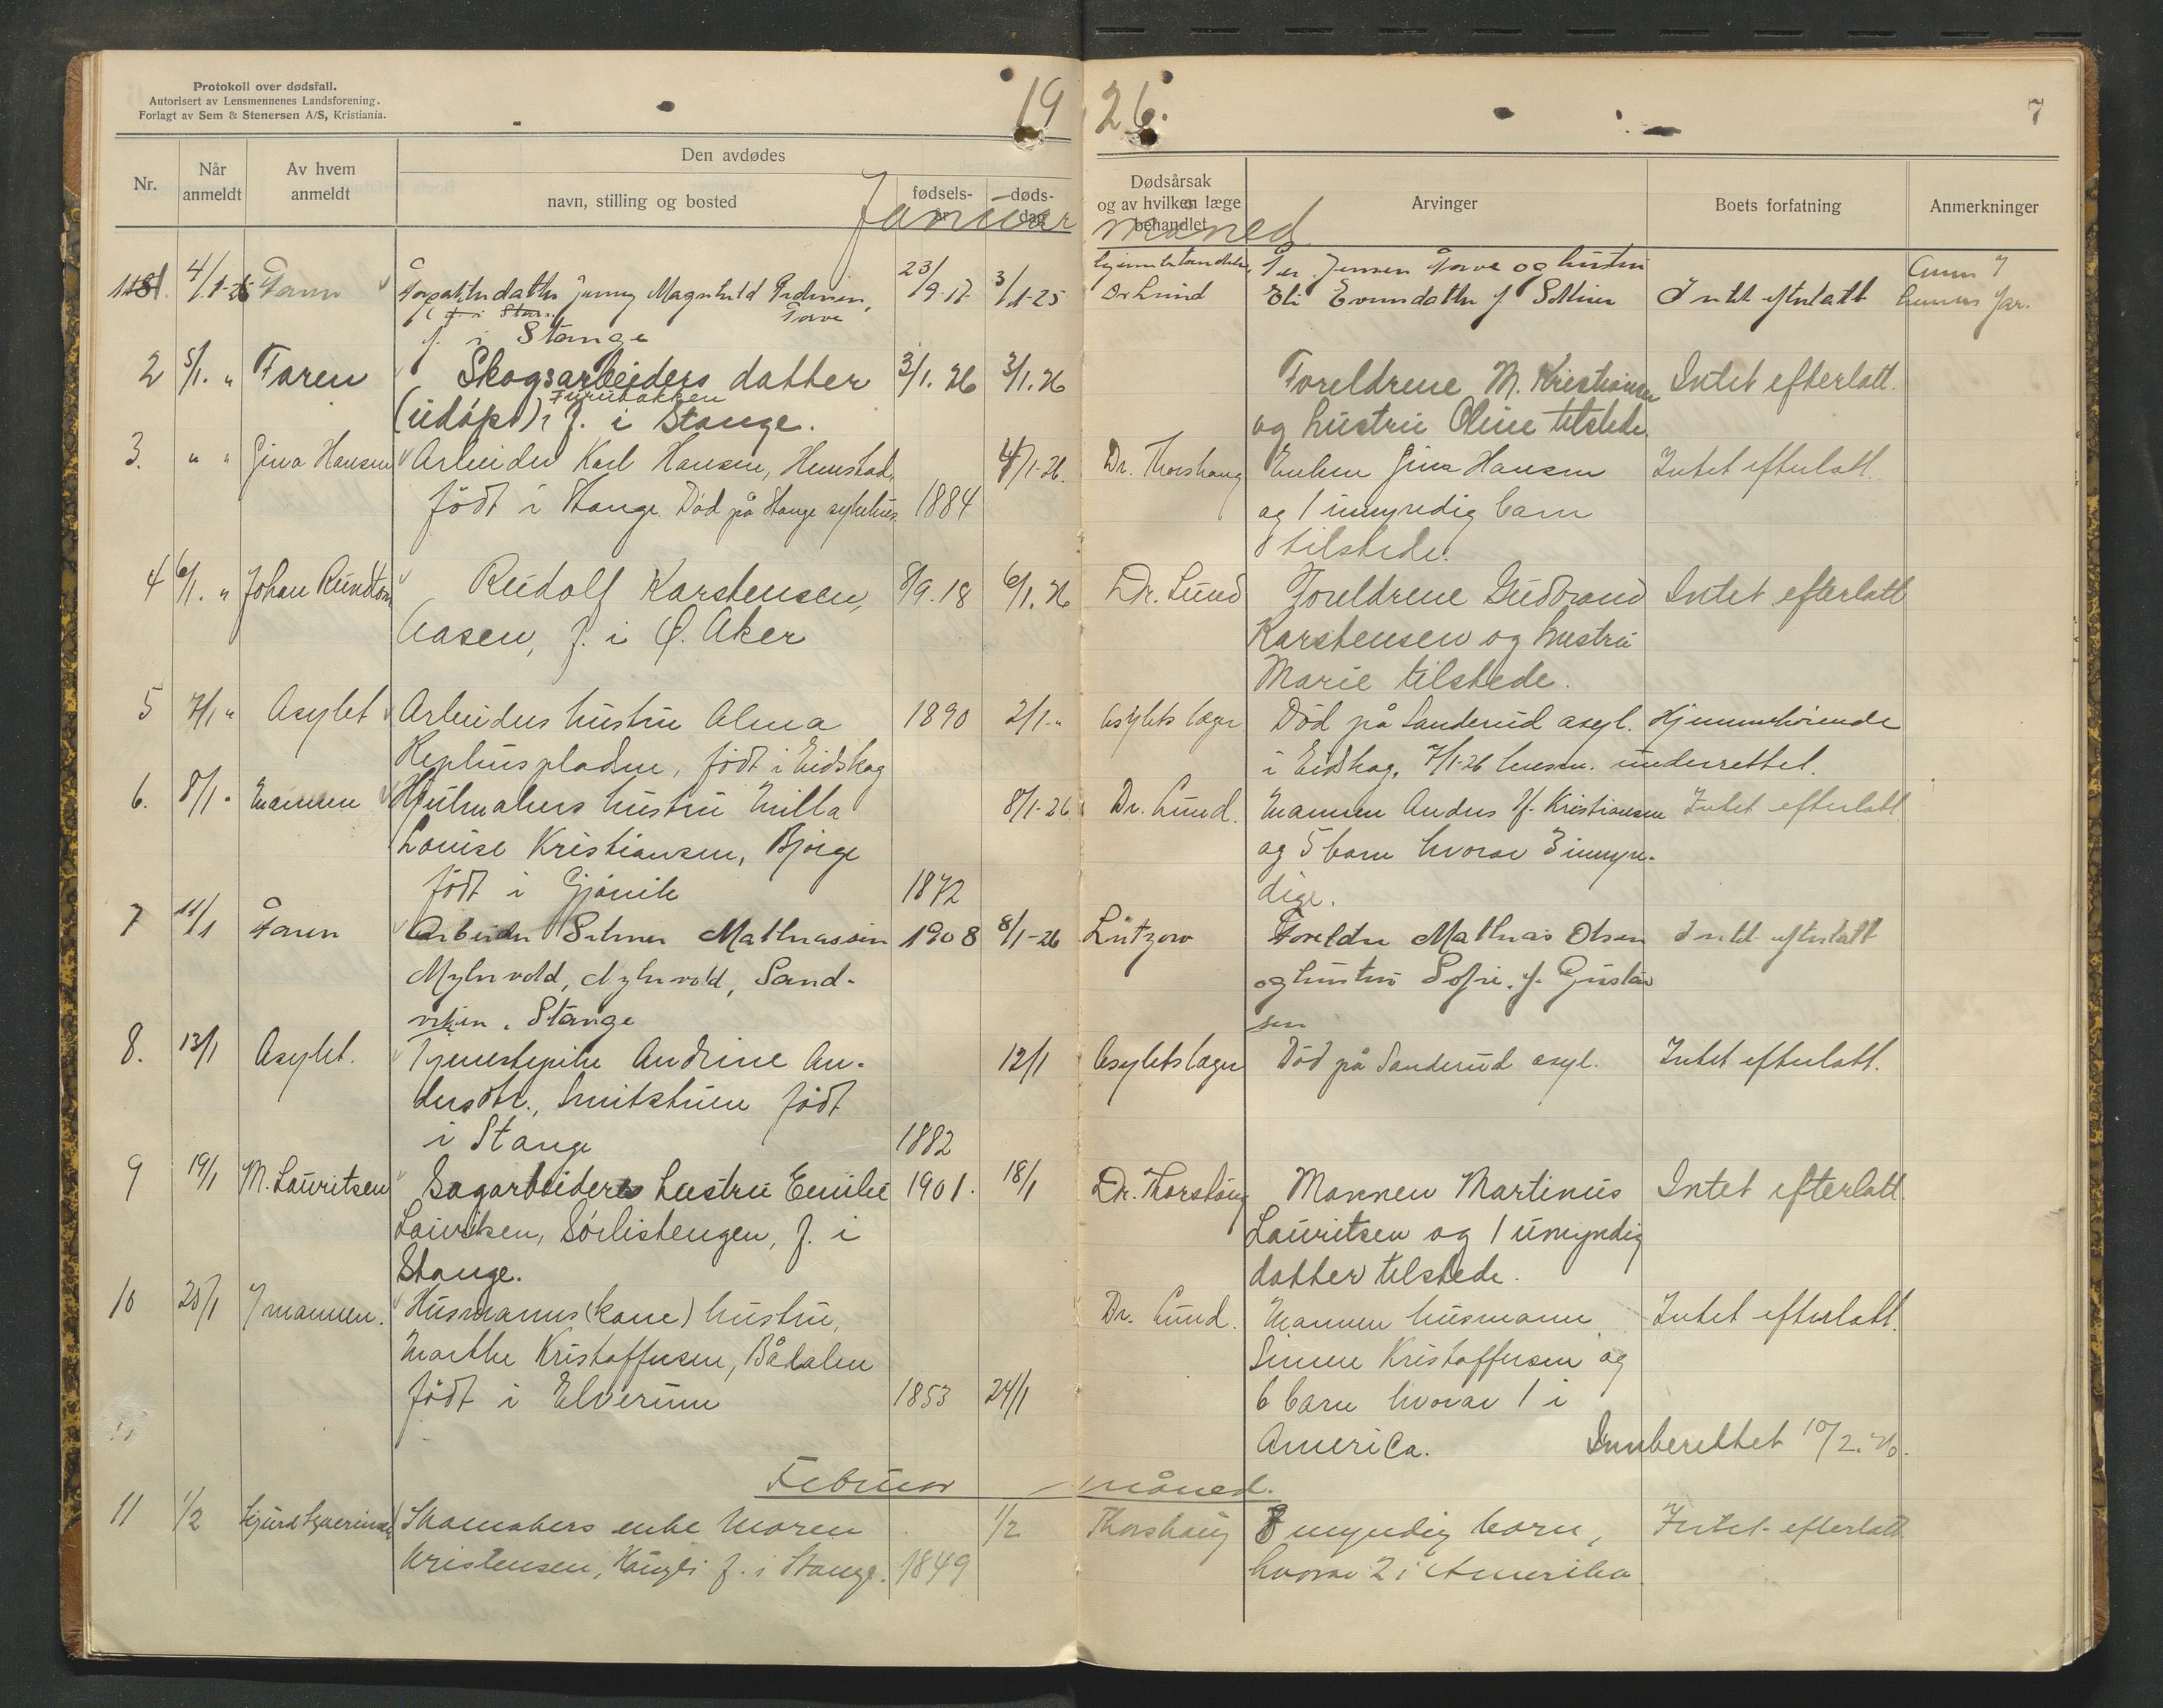 Protokoll over dødsfall.
Autorisert av Lensmennenes Landsforening.
Forlagt av Sem & Stenersen A/S, Kristiania.
19 26.
7
Nr.
Når anmeldt
Av hvem anmeldt
Den avdødes
navn, stilling og bosted
fødsels-
døds-
dag
Dødsårsak
og av hvilken læge
behandlet
Arvinger
Boets forfatning
Anmerkninger
Januar måned
1 4/1-26 Faren datter Jenny Magnhild Pedersen, 23/9-17 3/1-25 Dr Lund Per Jensen og hustru
f. i Stange Eli Evensdatter f. Intet efterlatt
2 5/1. " Faren Skogsarbeiders datter 3/1. 26 3/1. 26 Foreldrene M. Kristiansen Intet efterlatt.
Furubakken
(udøpt), f. i Stange. og hustru Oline tilstede.
3. " " Gina Hansen Arbeider Karl Hansen, Hemstad, 4/1-26. Dr. Thorshaug Enken Gina Hansen Intet efterlatt.
født i Stange. Død på Stange sykehus 1884 og 1 umyndig barn
tilstede.
4 6/1. " Johan Rundtom Rudolf Karstensen, 8/9.18 6/1. 26 Dr. Lund Foreldrene Gudbrand Intet efterlatt
Aasen, f. i Ø. Aker Karstensen og hustru
Marie tilstede.
5 7/1 " Asylet Arbeiders hustru Alma 1890 2/1 " Asylets læge Død på Sanderud asyl. Hjemmehørende
født i Eidskog i Eidskog. 7/1-26 lensm. underrettet.
6. 8/1 " Mannen Hjulmakers hustru Milla 8/1-26 Dr. Lund. Mannen Anders H. Kristiansen Intet efterlatt.
Louise Kristiansen, Bjørge og 5 barn hvorav 3 umyn-
født i Gjøvik 1872 dige.
7 11/1 Faren Arbeider Selmer Mathiassen 1908 8/1-26 Lützow Foreldre Mathias Olsen Intet efterlatt
Myhrvold, Myhrvold, Sand- og hustru Sofie f. Gustav
viken. Stange sen
8. 13/1 Asylet. Tjenestepike Andrine An- 12/1 Asylets læge Død på Sanderud asyl. Intet efterlatt.
dersdtr., Smitstuen født
i Stange 1882
9 19/1 M. Lauritsen Sagarbeiders hustru Emilie 1901. 18/1 Dr. Thorshaug Mannen Martinus Intet efterlatt.
Lauritsen, Sørlistengen, f. i Lauritsen og 1 umyndig
Stange. datter tilstede.
10 25/1 mannen. Husmanns (kone) hustru, Dr. Lund. Mannen husmann Intet efterlatt.
Marthe Kristoffersen, Bådalen Simen Kristoffersen og
født i Elverum 1853 24/1 6 barn hvorav 1 i
America. Innberettet 10/2. 26.
Februar måned.
11 1/2 Sigurd Skomakers enke Maren 1/2 Thorshaug 8 myndig barn, Intet efterlatt
Kristensen, f. i Stange. 1849 hvorav 2 i Amerika